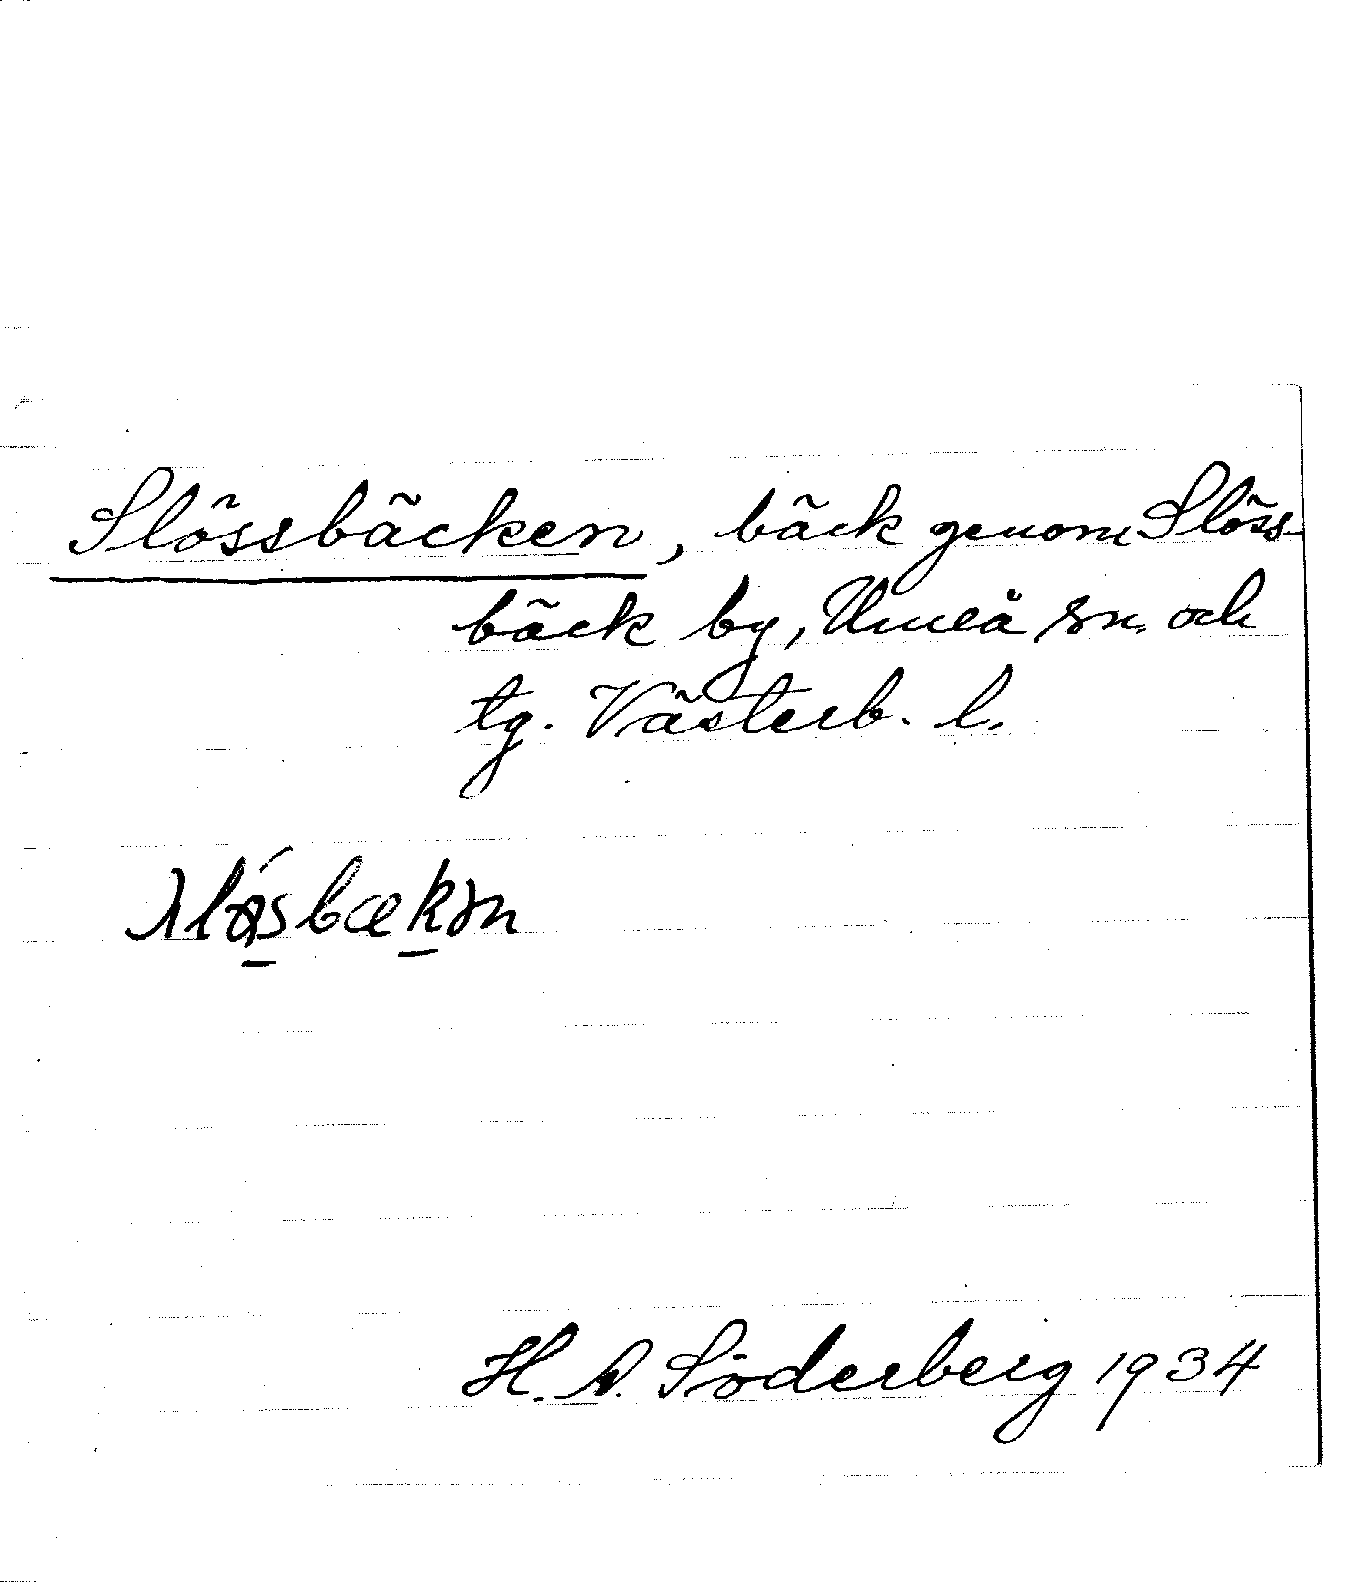 Slössbäcken, bäck genom Slöss-
bäck by, Umeå sn. och
tg. Västerb. l.
H. A. Söderberg 1934